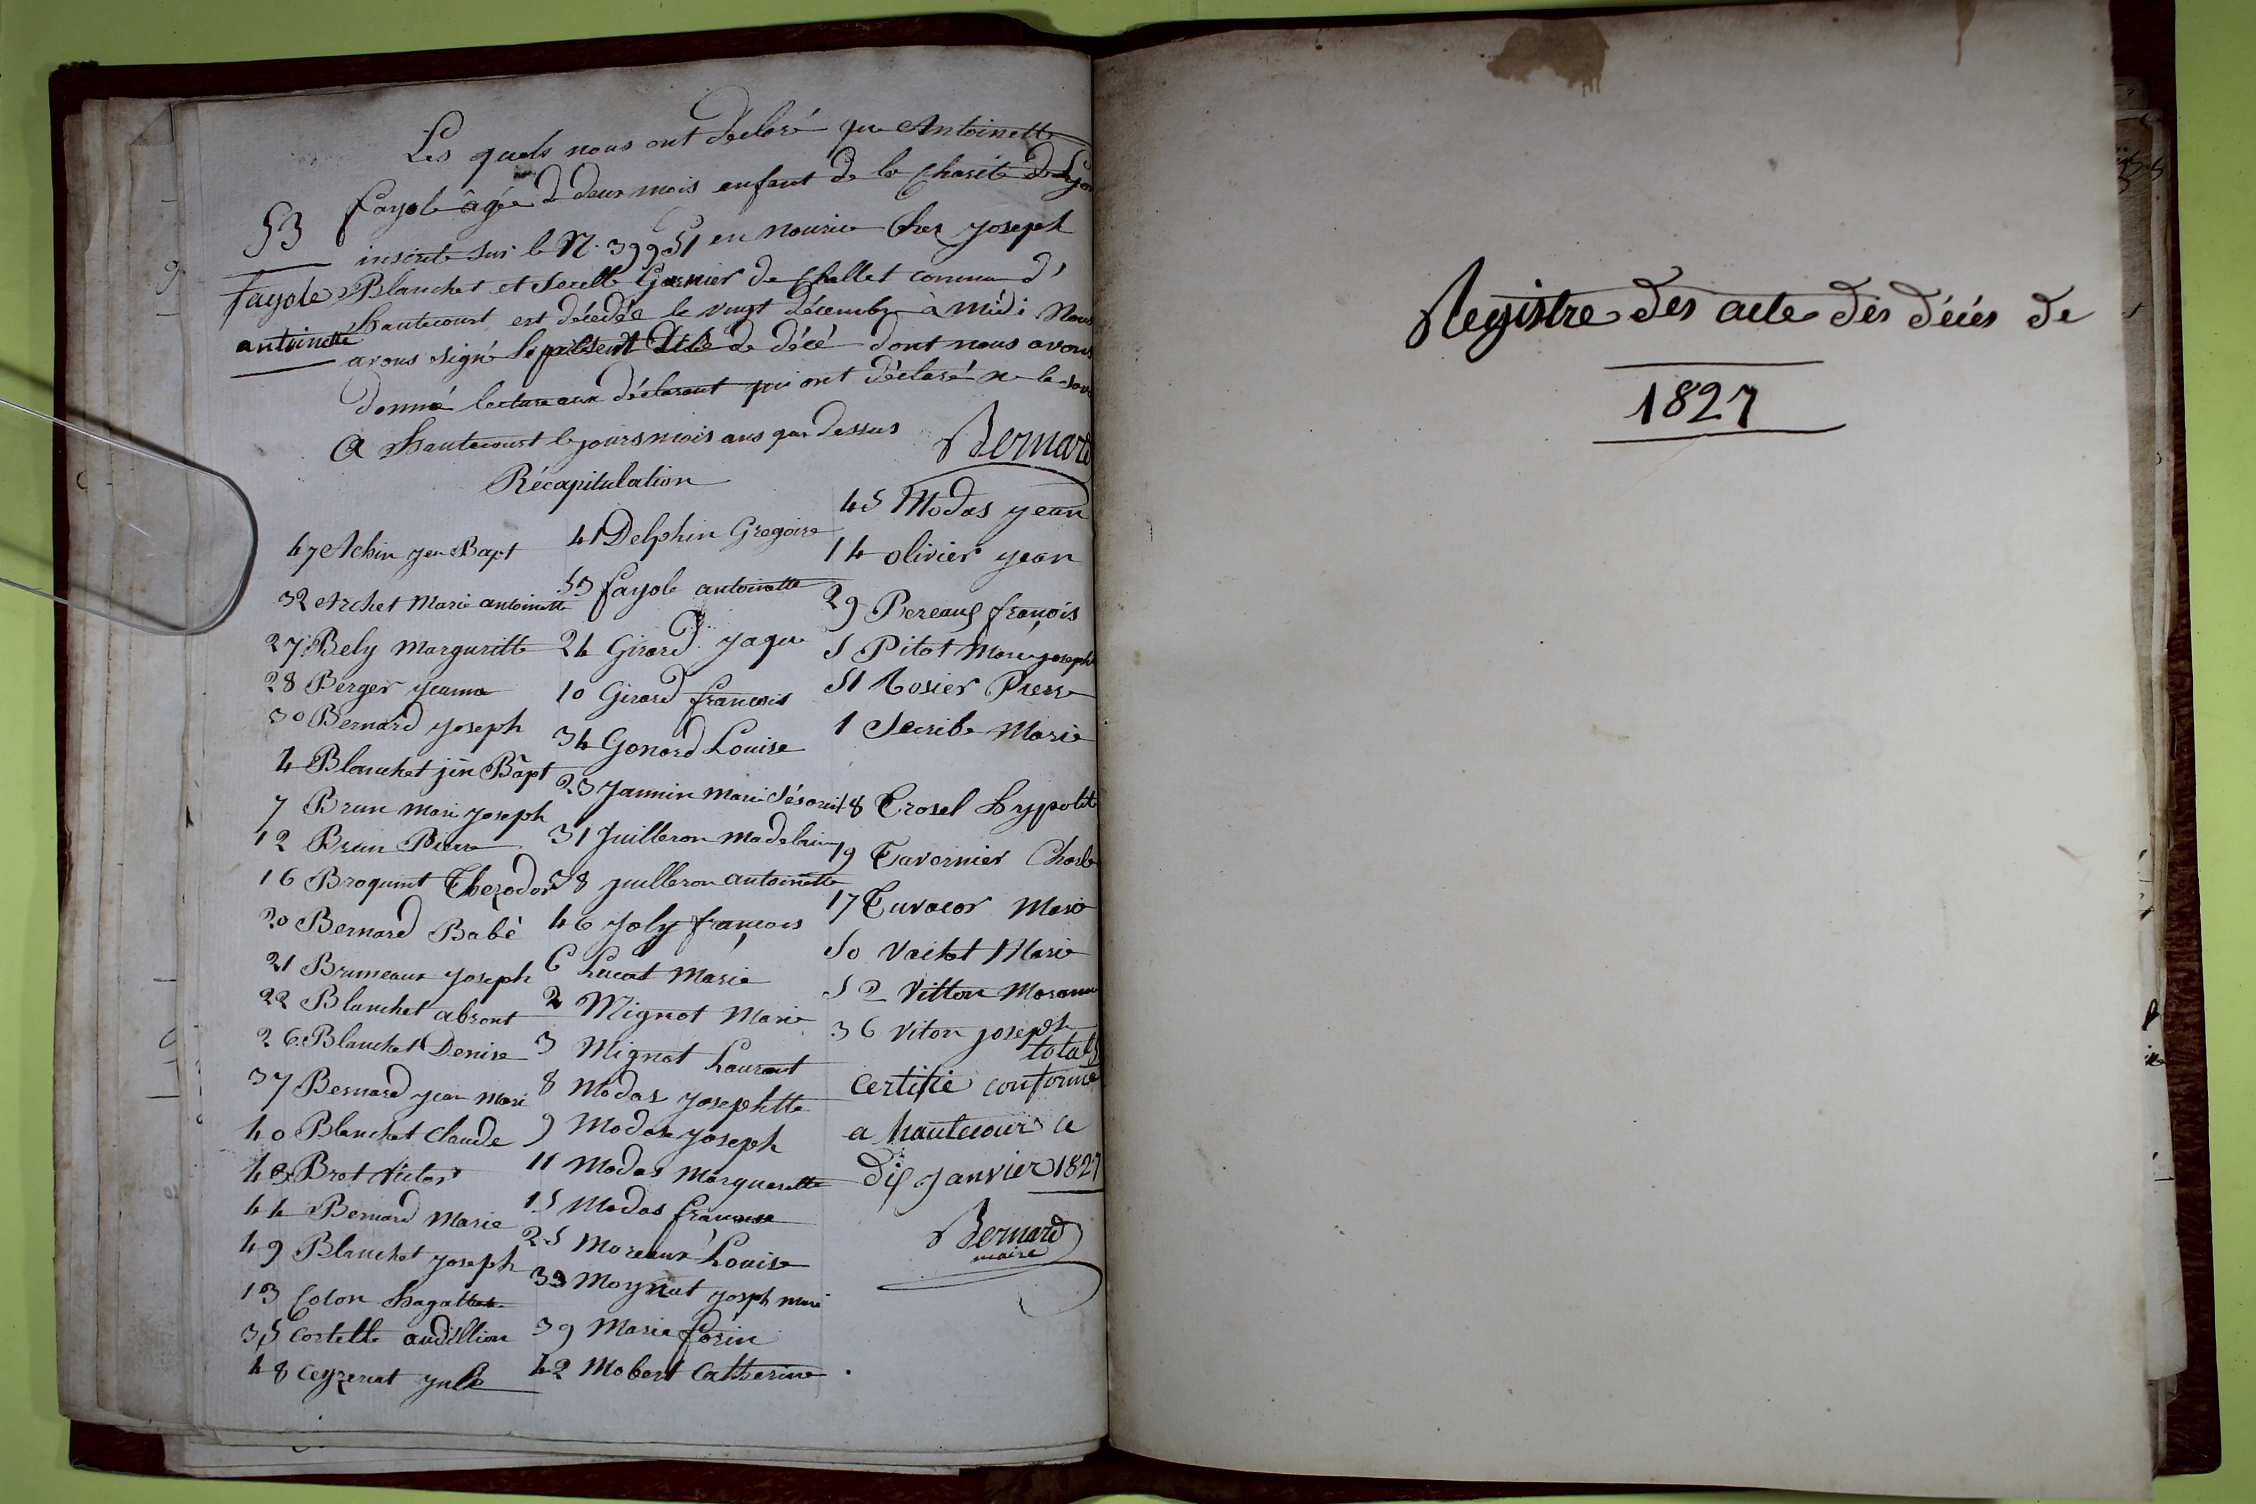 Les quels nous ont déclaré que Antoinette
fayole âgée d deux mois enfant de la Charité de Lyon
53
inscrite sur le N. 39951 en nourice Chez Joseph
fayole
Blanchet et Garnier de Challet commune d'
hautecourt est décédée le vingt décembre à midi Nous
antoinette
avons signé le présent acte de décé dont nous avons
donné lecture aux déclarant qui ont déclaré ne le
A hautecourt le jours mois ans que dessus
Bernard
Récapitulation
47 Achin jen Bapt
32 Archet Marie antoinette
27 Bely Margueritte
28 Berger jeanne
30 Bernard joseph
4 Blanchet jin Bapt
7 Brun Mari joseph
12 Brun Pierre
16 Broquint
20 Bernard Babé
21 Bruneaux joseph
22 Blanchet absont
26 Blanchet Denise
37 Bernard jean Mari
40 Blanchet Claude
43 Bret Victor
44 Bernard Marie
49 Blanchet joseph
13 Colon
35 Costelle
48 Ceyzeriat julie
41 Delphin Gregoire
53 fayole antoinette
24 Girard jaque
10 Girard francois
34 Gonard Louise
23 Jannin Marie
31 Juilleron Madelaine
38 juilleron antoinette
46 Joly françois
6 Lucat Marie
2 Mignot Marie
3 Mignot Laurant
8 Modas josephtte
9 Modas joseph
11 Modas Marguerette
15 Modas francoise
25 Moreaux Louise
33 Moynat josph mari
39 Marie forin
42 Mobert Catherine
45 Modas jean
14 olivier jean
29 Pereaux françois
5 Pitot Marie joseph
51 Rosier Pierre
1 Scribe Marie
18 Trosel hypolite
19 Tavernier Charle
17 Tuvacor Marie
50 Vachet Marie
52 Vitton
36 Viton joseph
total 53
certifié conforme
a hautecour ce
dix Janvier 1827
Bernard
maire
Registre des acte des décés de
1827